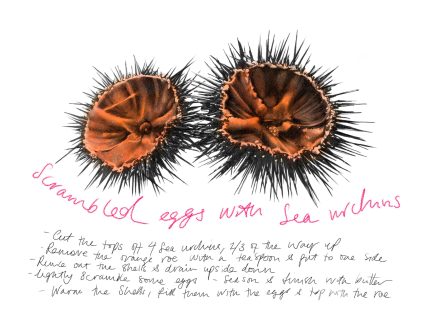 Scrambled eggs with Sea urchins
- Cut the tops off 4 sea urchins, 2/3 of the way up
- Remove the orange roe with a teaspoon & put to one side
- Rinse out the shells & drain upside down
- lightly scramble some eggs - Season & finish with butter
- Warm the shells, fill them with the eggs & top with the roe